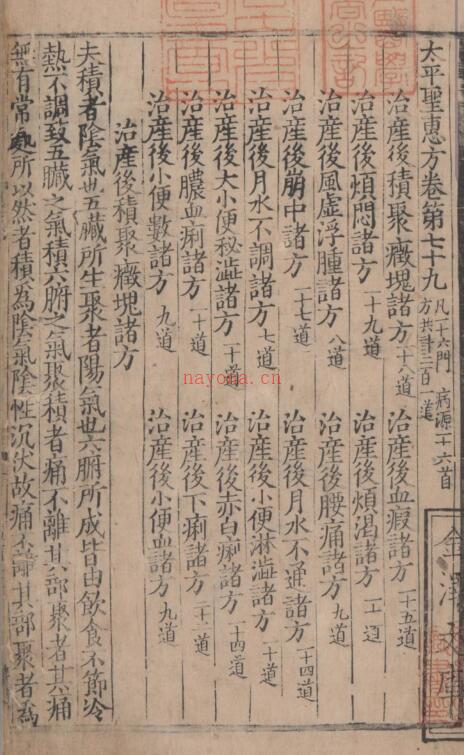 太平聖惠方卷第七十九 凡一十六門 病源一十六首 方共計二百一道
治產後積聚癥塊諸方 十八道 治產後血瘕諸方 一十五道
治產後煩悶諸方 一十九道 治產後煩渴諸方 一十道
治產後風虛浮腫諸方 八道 治產後腰痛諸方 九道
治產後崩中諸方 一十七道 治產後月水不通諸方 二十四道
治產後月水不調諸方 七道 治產後小便淋澁諸方 一十道
治產後大小便秘澁諸方 治產後赤白痢諸方 一十四道
治產後膿血痢諸方 一十道 治產後下痢諸方
治產後小便數諸方 九道 治產後小便血諸方 九道
治產後積聚癥塊諸方
夫積者陰氣也五藏所生聚者陽氣也六腑所成皆由飲食不節冷
熱不調致五臟之氣積六腑之氣聚積者痛不離其部聚者其痛
無有常處所以然者積為陰氣陰性沉伏故痛不離其部聚者為
金澤文庫
nayona.cn